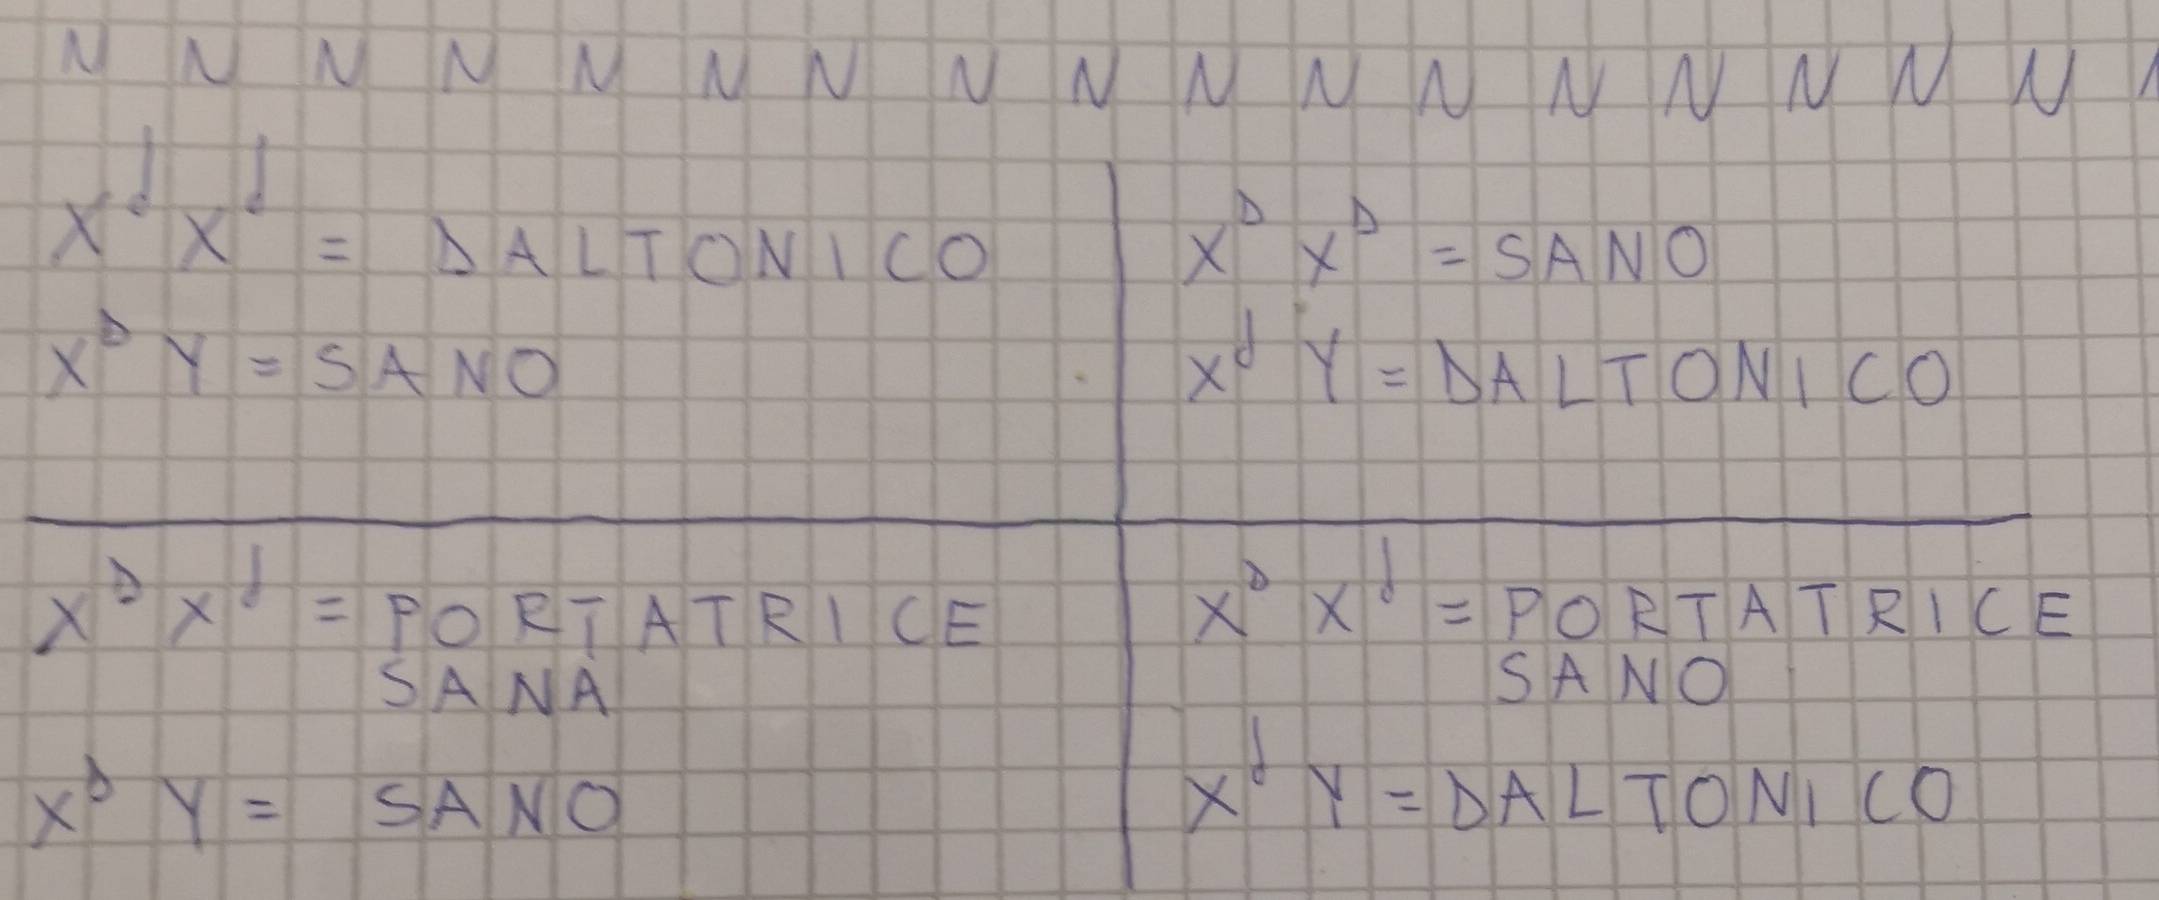 N N N N N N N N N N N N N N N N N
X^d X^d = DALTONICO
X^D Y = SANO
X^D X^D = SANO
X^d Y = DALTONICO
X^D X^d = PORTATRICE
SANA
X^D Y = SANO
X^D X^d = PORTATRICE
SANO
X^d Y = DALTONICO